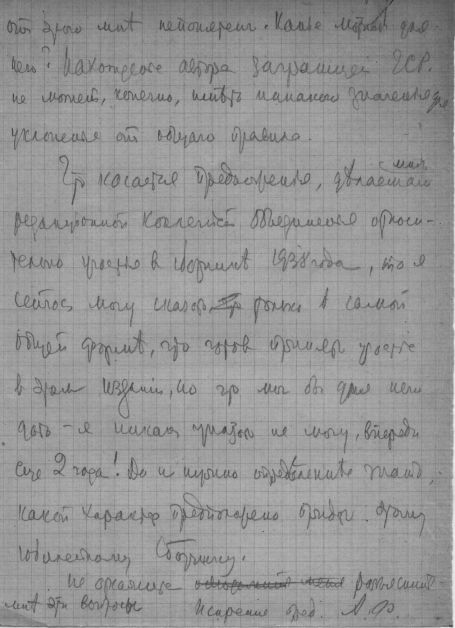 отъ этого мнѣ непонятенъ. Какіе мотивы для
него? Нахожденіе автора заграницей СССР.
не можетъ, конечно, имѣть никакого значенія для
уклоненія от общаго правила.
Что касается предположенія, дѣлаемаго мнѣ
редакціонной Коллегіей Объединенія относи-
тельно участія в сборникѣ 1938 года, то я
сейчас могу сказать только в самой
общей формѣ, что готов принять участіе
в этом изданіи, но что мог бы для него
дать – я никак указать не могу, впереди
еще 2 года! Да и нужно опредѣленнѣе знать,
какой характер предположено придать этому
юбилейному Сборнику.
Не откажите разъяснить
мнѣ эти вопросы Искренно пред. А. Ф.